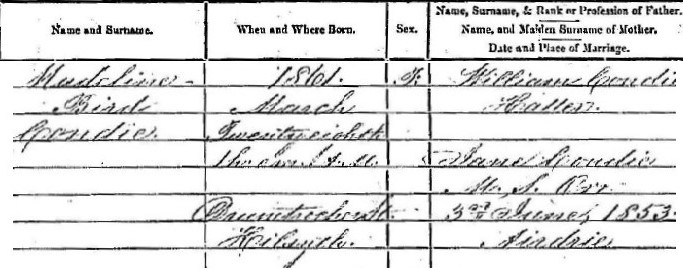 Name and Surname.
When and Where Born.
Sex.
Name, Surname, & Rank or Profession of Father.
Name, and Maiden Surname of Mother.
Date and Place of Marriage.
Madeline
Bird
Condie
1861.
March
Twenty eighth
Kilsyth.
F.
William Condie
Hatter.
Jane Condie
M. S. Orr
3rd June, 1853.
Airdrie